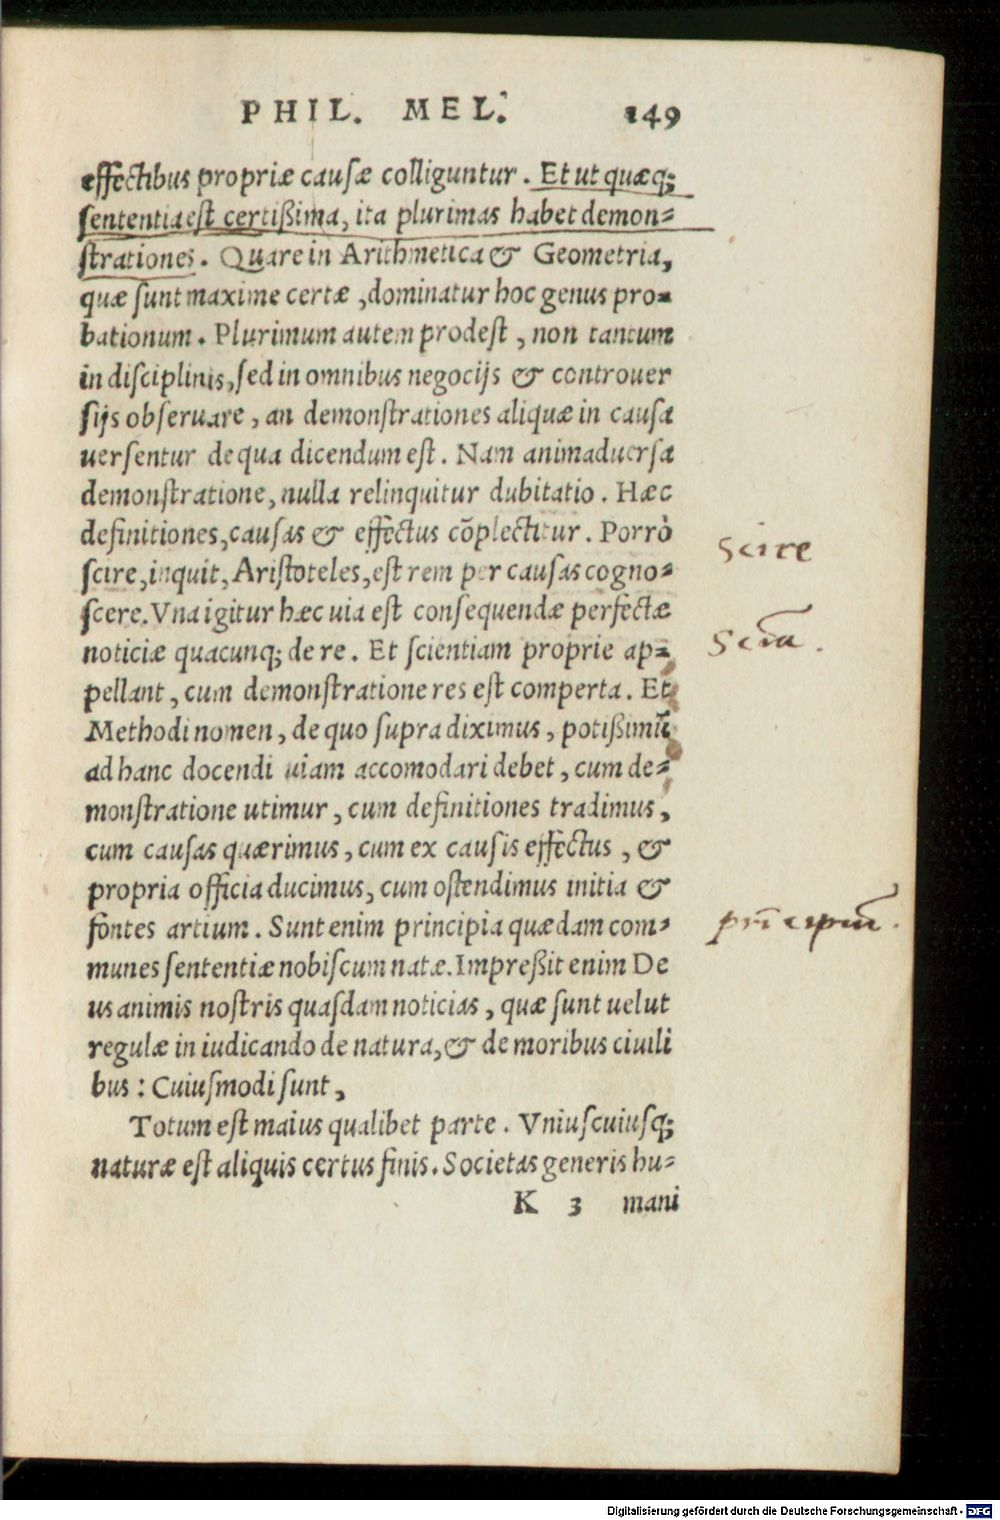 PHIL. MEL. 149
effectibus propriæ causæ colliguntur. Et ut quæq;
sententia est certißima, ita plurimas habet demon-
strationes. Quare in Arithmetica & Geometria,
quæ sunt maxime certæ, dominatur hoc genus pro-
bationum. Plurimum autem prodest, non tantum
in disciplinis, sed in omnibus negocijs & controuer
sijs obseruare, an demonstrationes aliquæ in causa
uersentur de qua dicendum est. Nam animaduersa
demonstratione, nulla relinquitur dubitatio. Hæc
definitiones, causas & effectus cõplectitur. Porrò
scire, inquit, Aristoteles, est rem per causas cogno-
scere. Vna igitur hæc uia est consequendæ perfectæ
noticiæ quacunq; de re. Et scientiam proprie ap-
pellant, cum demonstratione res est comperta. Et
Methodi nomen, de quo supra diximus, potißimũ
ad hanc docendi uiam accomodari debet, cum de-
monstratione utimur, cum definitiones tradimus,
cum causas quærimus, cum ex causis effectus, &
propria officia ducimus, cum ostendimus initia &
fontes artium. Sunt enim principia quædam com-
munes sententiæ nobiscum natæ. Impreßit enim De
us animis nostris quasdam noticias, quæ sunt uelut
regulæ in iudicando de natura, & de moribus ciuili
bus: Cuiusmodi sunt,
Totum est maius qualibet parte. Vniuscuiusq;
naturæ est aliquis certus finis. Societas generis hu-
K 3 mani
scire
scīa.
prīcipiū.
Digitalisierung gefördert durch die Deutsche Forschungsgemeinschaft - DFG